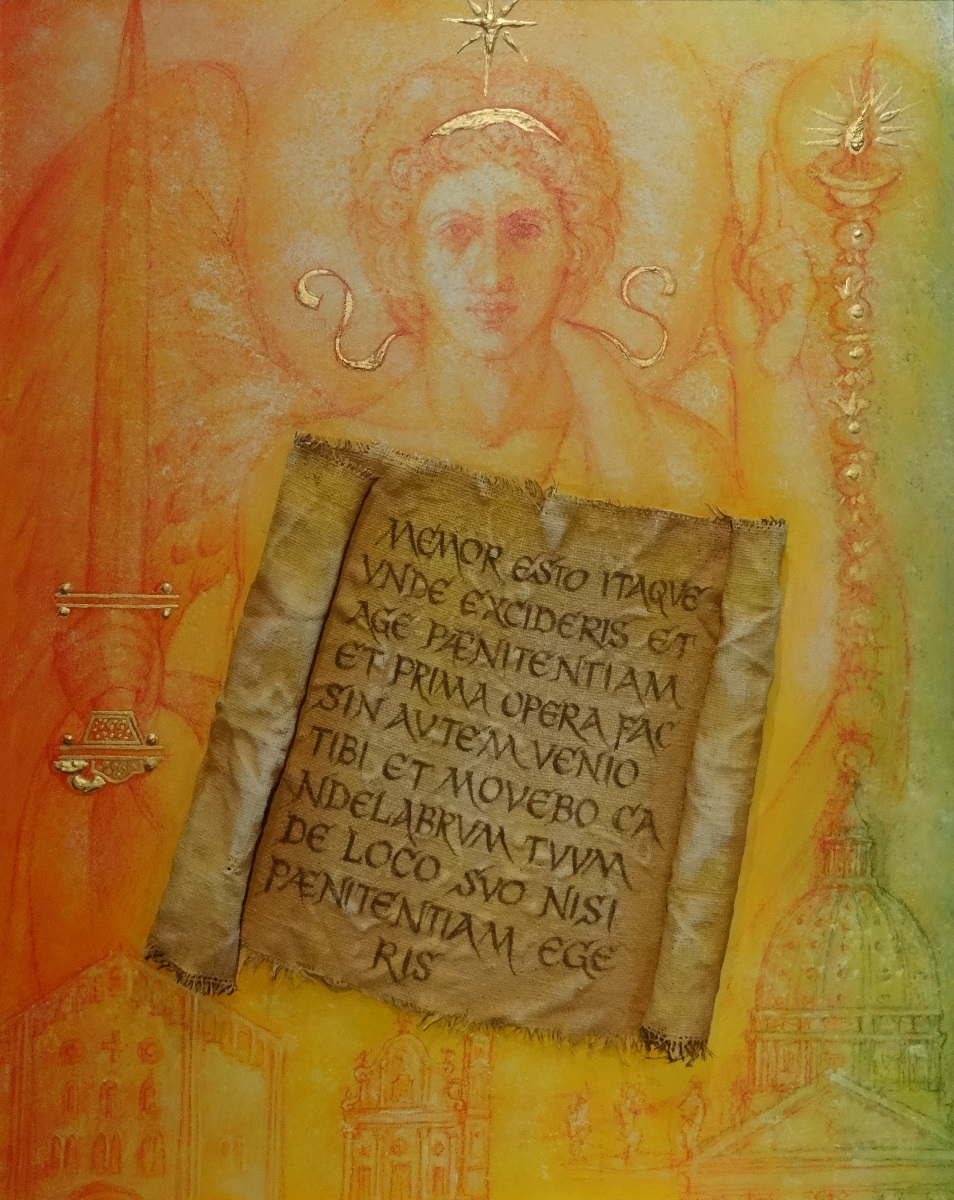 MEMOR ESTO ITAQVE
VNDE EXCIDERIS ET
AGE PÆNITENTIAM
ET PRIMA OPERA FAC
SIN AVTEM VENIO
TIBI ET MOVEBO CA
NDELABRVM TVVM
DE LOCO SVO NISI
PÆNITENTIAM EGE
RIS